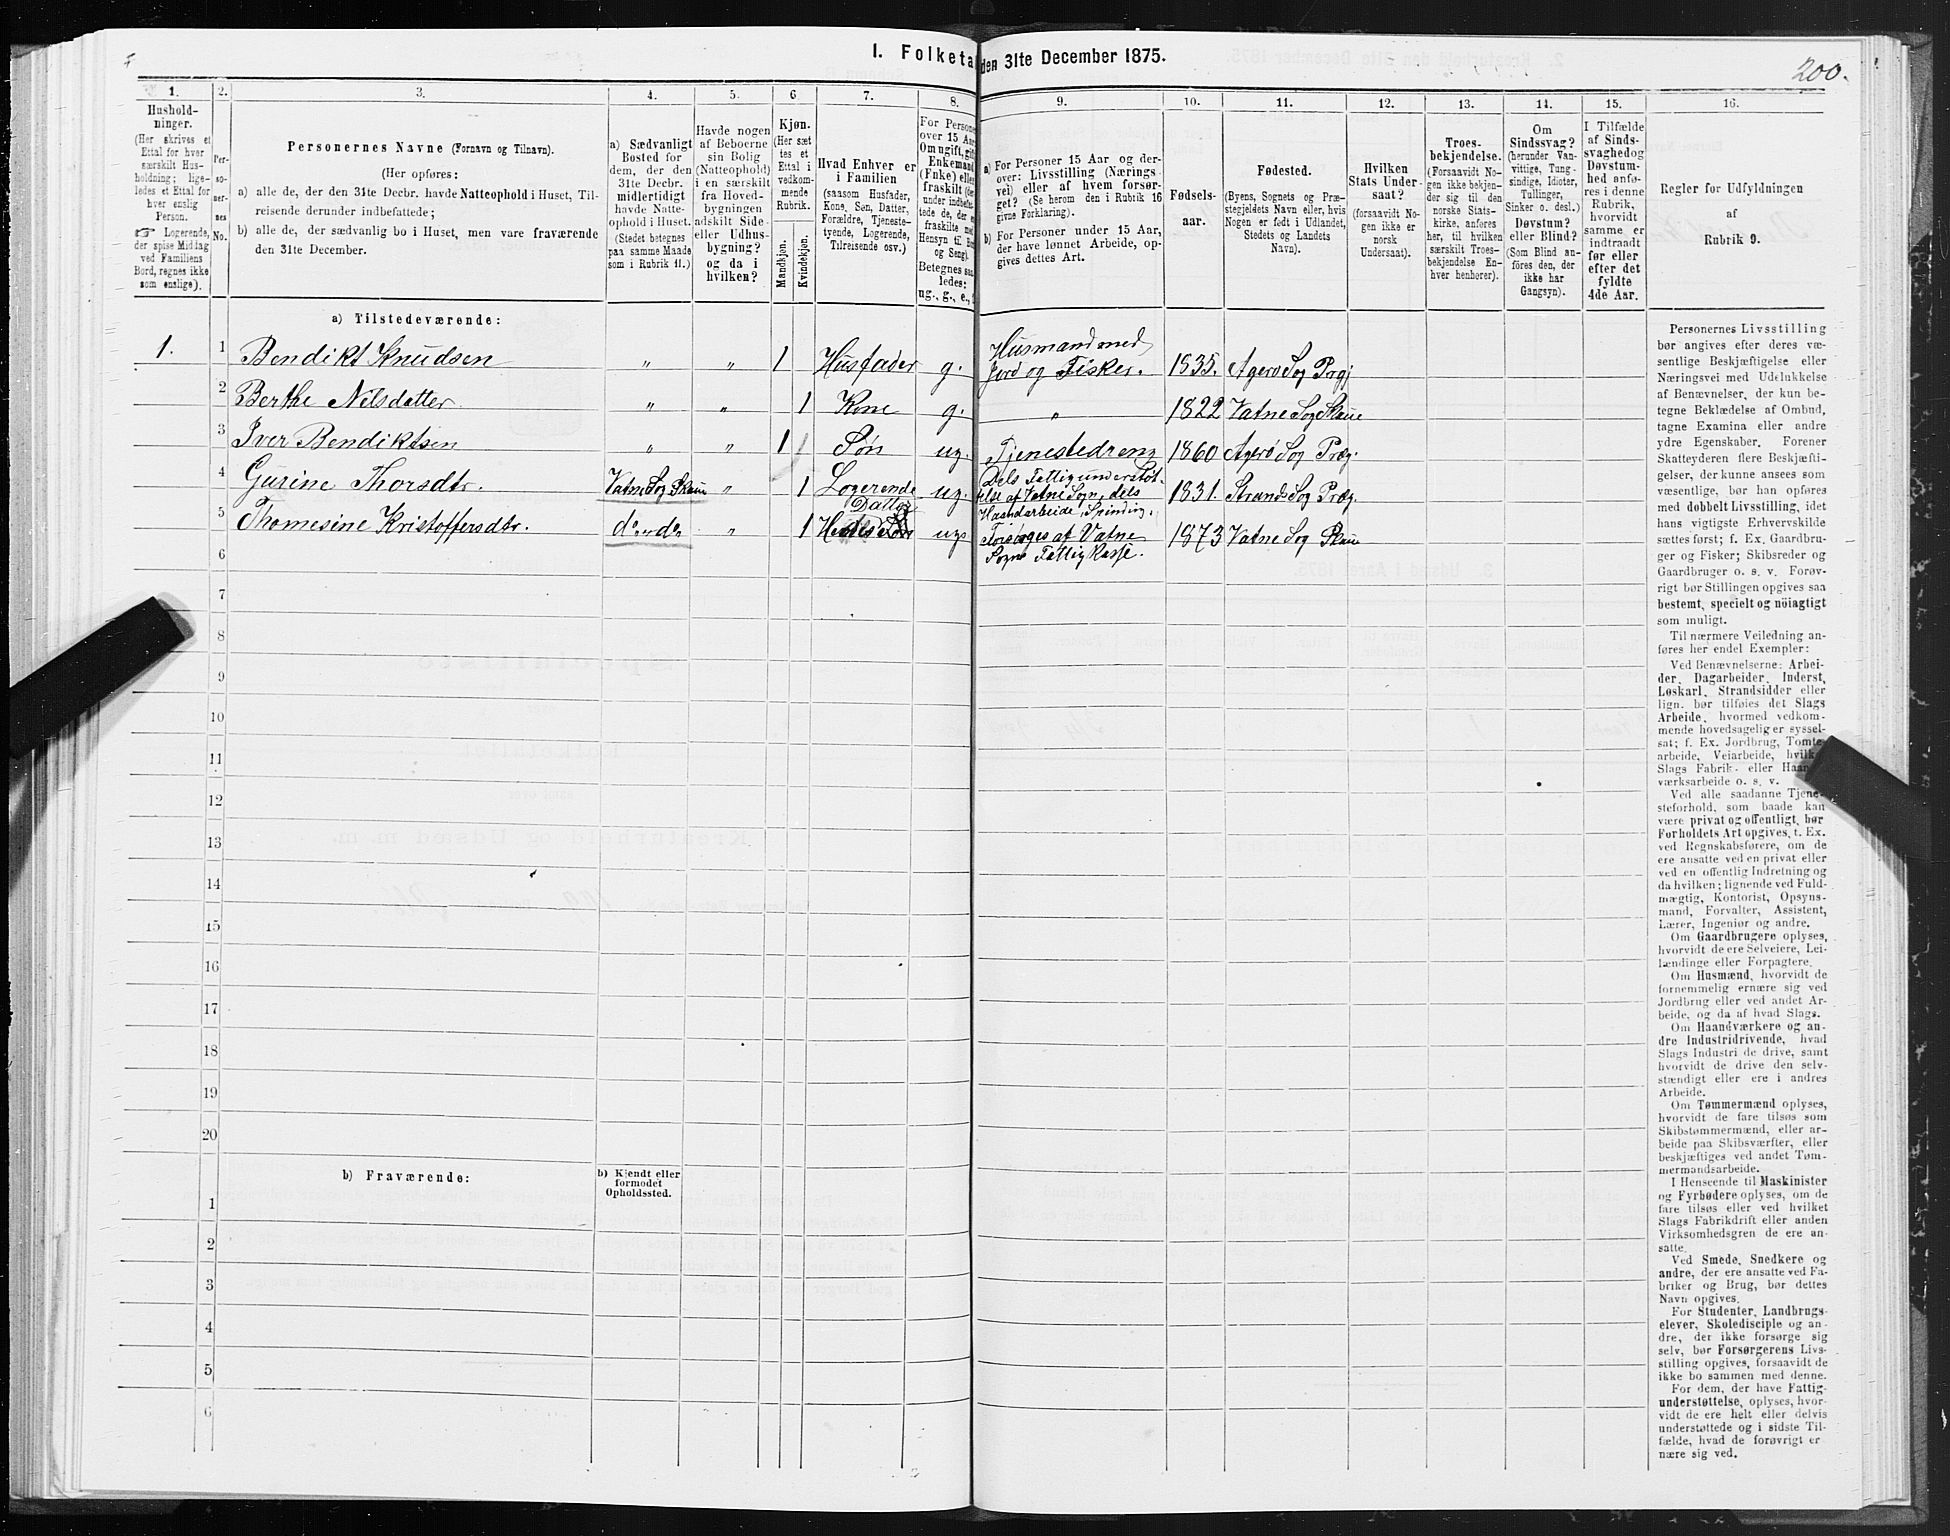 I. Folketa den 31te December 1875.
200.
1.
Hushold-
ninger.
(Her skrives et
Ettal for hver
særskilt Hus-
holdning; lige-
ledes et Ettal for
hver enslig
Person.
☞ Logerende,
der spise Middag
ved Familiens
Bord, regnes ikke
som enslige).
2.
Per-
so-
ner-
nes
No.
3.
Personernes Navne (Fornavn og Tilnavn).
(Her opføres:
a) alle de, der den 31te Decbr. havde Natteophold i Huset, Til-
reisende derunder indbefattede;
b) alle de, der sædvanlig bo i Huset, men vare fraværende
den 31te December.
4.
a) Sædvanligt
Bosted for
dem, der den
31te Decbr.
midlertidigt
havde Natte-
ophold i Huset.
(Stedet betegnes
paa samme Maade
som i Rubrik 11.)
5.
Havde nogen
af Beboerne
sin Bolig
(Natteophold)
i en særskilt
fra Hoved-
bygningen
adskilt Side-
eller Udhus-
bygning?
og da i
hvilken?
6
Kjøn.
(Her sæt
tes et
Ettal i
vedkom-
mende
Rubrik.
Mandkjøn.
Kvindekjøn.
7.
Hvad Enhver er
i Familien
(saasom Husfader,
Kone, Søn, Datter,
Forældre, Tjeneste-
tyende, Logerende,
Tilreisende osv.)
8.
For Persone
over 15 Aar
Om ugift, gift
Enkemand
(Enke) eller
fraskilt (der
under indbefat-
tede de, der e
fraskilte med
Hensyn til Bo
og Seng).
Betegnes saa
ledes:
ug., g., e.,
9.
a) For Personer 15 Aar og der-
over: Livsstilling (Nærings
vei) eller af hvem forsør-
get? (Se herom den i Rubrik 16
givne Forklaring).
b) For Personer under 15 Aar,
der have lønnet Arbeide, op-
gives dettes Art.
10.
Fødsels-
aar.
11.
Fødested.
(Byens, Sognets og Præ-
stegjeldets Navn eller, hvis
Nogen er født i Udlandet,
Stedets og Landets
Navn).
12.
Hvilken
Stats Under-
saat?
(forsaavidt No-
gen ikke er
norsk
Undersaat).
13.
Troes-
bekjendelse.
(Forsaavidt No-
gen ikke bekjen-
der sig til den
norske Stats-
kirke, anføres
her, til hvilken
særskilt Troes-
bekjendelse En-
hver henhører).
14.
Om
Sindssvag?
(herunder Van-
vittige, Tung-
sindige, Idioter,
Tullinger,
Sinker o. desl.)
Døvstum?
eller Blind?
(Som Blind an-
føres den, der
ikke har
Gangsyn).
15.
I Tilfælde
af Sinds-
svaghed og
Døvstum-
hed anfø-
res i denne
Rubrik,
hvorvidt
samme er
indtraadt
før eller
efter det
fyldte
4de Aar.
16.
Regler for Udfyldningen
af
Rubrik 9.
a) Tilstedeværende:
1. 1 Bendikt Knudsen „ „ 1 Husfader g. Husmand med
Jord og Fisker. 1835. Agerø Sog Prgj
2 Berthe Nilsdatter „ „ 1 Kone g. „ 1822 Vatne Sog Skaue
3 Iver Bendiktsen „ „ 1 Søn ug. Tjenestedreng 1860 Agerø Sog Præg.
4 Gurine Thorsdtr. Vatne Sog Skaue „ 1 Logerende ug. Dels Fattigunderstøt-
telse af Vatne Sogn, dels
Haandarbeide, Spinding. 1831. Strands Sog Præg.
Datter
5 Thomesine Kristoffersdtr. do „ do „ 1 Hendes ug. Forsørges af Vatne
Sogns Fattigkasse. 1873 Vatne Sog Skaue
6
7
8
9
10
11
12
13
14
15
16
17
18
19
20
b) Fraværende:
b) Kjendt eller
formodet
Opholdssted.
1
2
3
4
5
6
Personernes Livsstilling
bør angives efter deres væ-
sentlige Beskjæftigelse eller
Næringsvei med Udelukkelse
af Benævnelser, der kun be-
tegne Beklædelse af Ombud,
tagne Examina eller andre
ydre Egenskaber. Forener
Skatteyderen flere Beskjæfti-
gelser, der kunne ansees som
væsentlige, bør han opføres
med dobbelt Livsstilling, idet
hans vigtigste Erhvervskilde
sættes først; f. Ex. Gaardbru-
ger og Fisker; Skibsreder og
Gaardbruger o. s. v. Forøv-
rigt bør Stillingen opgives saa
bestemt, specielt og nöiagtigt
som muligt.
Til nærmere Veiledning an-
føres her endel Exempler:
Ved Benævnelserne: Arbei-
der, Dagarbeider, Inderst,
Løskarl, Strandsidder eller
lign. bør tilføies det Slags
Arbeide, hvormed vedkom-
mende hovedsagelig er syssel-
sat; f. Ex. Jordbrug, Tomte-
arbeide, Veiarbeide, hvilke
Slags Fabrik- eller Haand-
værksarbeide o. s. v.
Ved alle saadanne Tjene-
steforhold, som baade kan
være privat og offentligt, bør
Forholdets Art opgives, t. Ex.
ved Regnskabsførere, om de
ere ansatte ved en privat eller
ved en offentlig Indretning og
da hvilken; lignende ved Fuld-
mægtig, Kontorist, Opsyns-
mand, Forvalter, Assistent,
Lærer, Ingeniør og andre.
Om Gaardbrugere oplyses,
hvorvidt de ere Selveiere, Lei-
lændinge eller Forpagtere.
Om Husmænd, hvorvidt de
fornemmelig ernære sig ved
Jordbrug eller ved andet Ar-
beide, og da af hvad Slags.
Om Haandværkere og an-
dre Industridrivende, hvad
Slags Industri de drive, samt
hvorvidt de drive den selv-
stændigt eller ere i andres
Arbeide.
Om Tømmermænd oplyses,
hvorvidt de fare tilsøs som
Skibstømmermænd, eller ar-
beide paa Skibsværfter, eller
beskjæftiges ved andet Tøm-
mermandsarbeide.
I Henseende til Maskinister
og Fyrbødere oplyses, om de
fare tilsøs eller ved hvilket
Slags Fabrikdrift eller anden
Virksomhedsgren de ere an-
satte.
Ved Smede, Snedkere og
andre, der ere ansatte ved Fa-
briker og Brug, bør dettes
Navn opgives.
For Studenter, Landbrugs-
elever, Skoledisciple og an-
dre, der ikke forsørge sig
selv, bør Forsørgerens Livs-
stilling opgives, forsaavidt de
ikke bo sammen med denne.
For dem, der have Fattig-
understøttelse, oplyses, hvor-
vidt de ere helt eller delvis
understøttede og i sidste Til-
fælde, hvad de forøvrigt er-
nære sig ved.